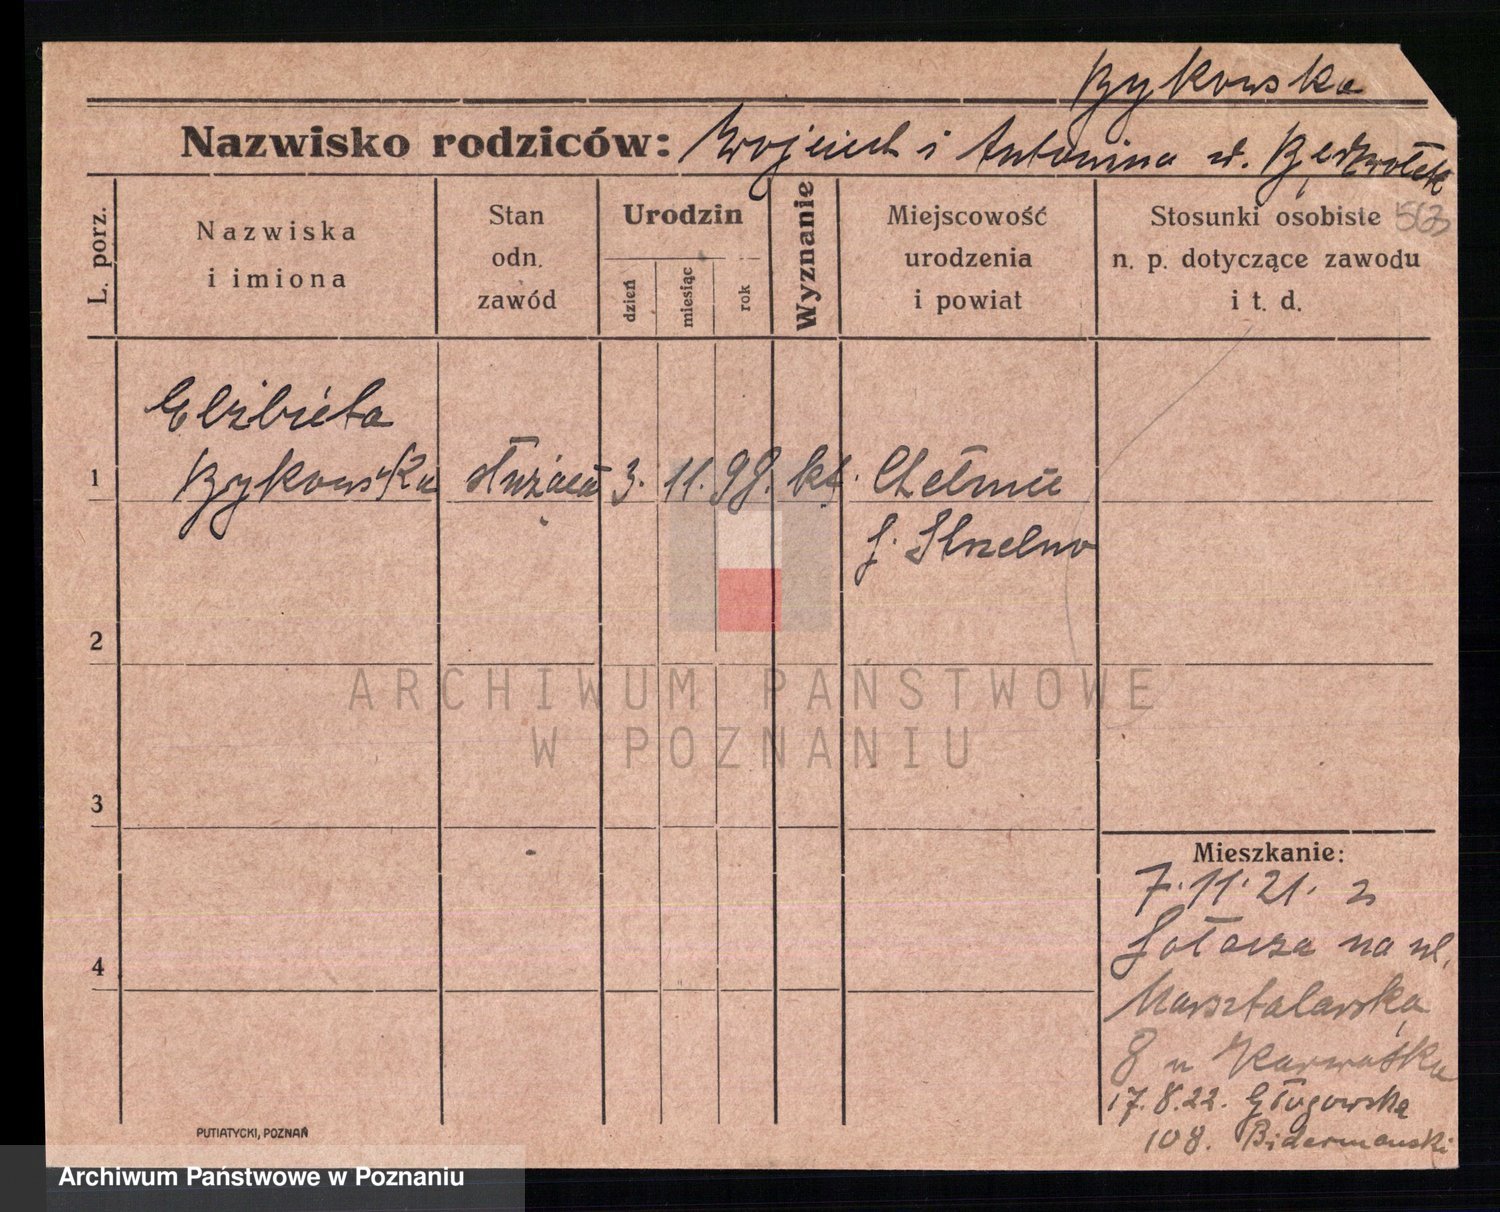 Bykowska
Nazwisko rodziców: Wojciech i Antonina z d.
563
L. porz.
Nazwiska
i imiona
Stan
odn.
zawód
Urodzin
dzień
miesiąc
rok
Wyznanie
Miejscowość
urodzenia
i powiat
Stosunki osobiste
n. p. dotyczące zawodu
i t. d.
Elżbieta
1 Bykowska służąca 3. 11. 99. kt. Chełmce
p. Strzelno
2
ARCHIWUM PAŃSTWOWE
W POZNANIU
3
Mieszkanie:
7.11.21. z
Sołacza na ul.
4
Masztalarską
8 u
17.8.22. Głogowska
108. Bidermanski
PUTIATYCKI, POZNAŃ
Archiwum Państwowe w Poznaniu